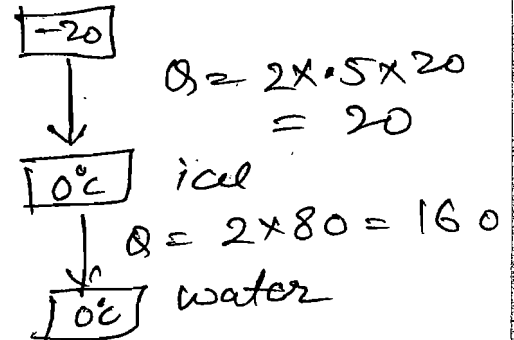 -20
Q = 2×.5×20
= 20
0°C ice
Q = 2×80 = 160
0°C water